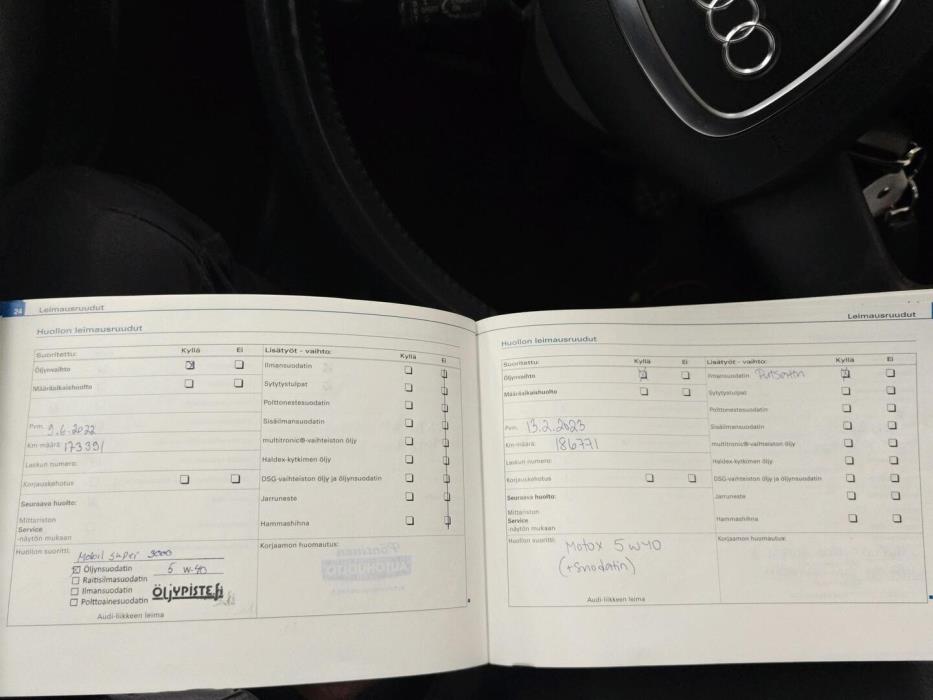 24 Leimausruudut
Huollon leimausruudut
Suoritettu: Kyllä Ei
Öljynvaihto
Määräaikaishuolto
Pvm. 9.6.2022
Km-määrä: 173391
Laskun numero:
Korjauskehotus
Seuraava huolto:
Mittariston
Service
-näytön mukaan
Huollon suoritti:
Mobil super 3000
Öljynsuodatin 5 W-40
Raitisilmasuodatin
Ilmansuodatin
Polttoainesuodatin
ÖLJYPISTE.fi
Audi-liikkeen leima
Lisätyöt - vaihto: Kyllä Ei
Ilmansuodatin
Sytytystulpat
Polttonestesuodatin
Sisäilmansuodatin
multitronic®-vaihteiston öljy
Haldex-kytkimen öljy
DSG-vaihteiston öljy ja öljynsuodatin
Jarruneste
Hammashihna
Korjaamon huomautus:
Leimausruudut
Huollon leimausruudut
Suoritettu: Kyllä Ei
Öljynvaihto
Määräaikaishuolto
Pvm. 13.2.2023
Km-määrä: 186771
Laskun numero:
Korjauskehotus
Seuraava huolto:
Mittariston
Service
-näytön mukaan
Huollon suoritti: Motox 5W40
(+Suodatin)
Audi-liikkeen leima
Lisätyöt - vaihto: Kyllä Ei
Ilmansuodatin
Sytytystulpat
Polttonestesuodatin
Sisäilmansuodatin
multitronic®-vaihteiston öljy
Haldex-kytkimen öljy
DSG-vaihteiston öljy ja öljynsuodatin
Jarruneste
Hammashihna
Korjaamon huomautus: